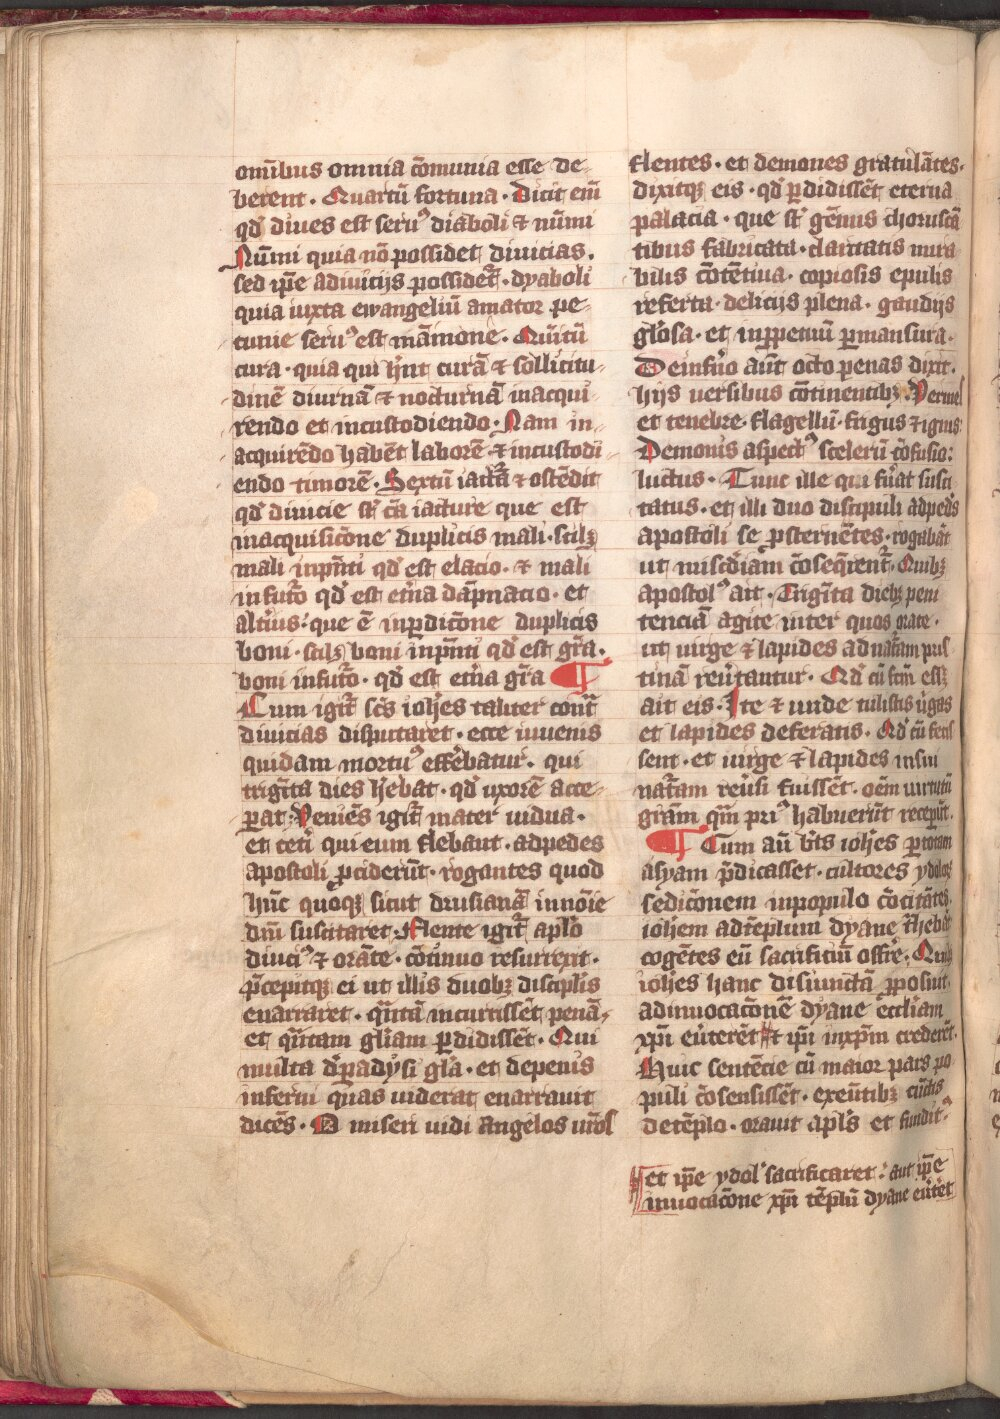 om̄ibus omnia cōmunia esse de-
berent. Quartū fortuna. Dicit em̄
qd̓ diues est seruꝰ diaboli ⁊ nūmi
Nūmi quia nō possidet diuicias.
sed ip̄e adiuicijs possidet᷑. dyaboli
quia iuxta ewangeliū amator pe-
cunie seruꝰ est māmone. Quītū
cura. quia qui hn̄t curā ⁊ sollicitu-
dinē diurnā ⁊ nocturnā inacqui-
rendo et incustodiendo. Nam in-
acquirēdo habēt laborē. ⁊ incustodi-
endo timorē. Sextū iactᷓa ⁊ ostēdit
qd̓ diuicie st̄ cā iacture que est
inacquisic̄one duplicis mali. scilꝫ
mali inpn̄ti qd̓ est elacio. ⁊ mali
in futᷓo qd̓ est et̓na dāpnacio. et
alt̓ius: que ē inꝑdic̄one duplicis
boni. scilꝫ boni inpn̄ti qd̓ est gr̄a.
boni infutᷓo. qd̓ est et̓na gr̄a ¶
Cum igit᷑ sc̄s ioh̄es taliter contᷓ
diuicias disputaret. ecce iuuenis
quidam mortuꝰ efferebatur. qui
trigīta dies h̓ebat. qd̓ uxorē acce-
ꝑat. Veniēs igit᷑ mater uidua.
et cet̓i qui eum flebant. adpedes
apostoli ꝓciderūt. rogantes quod
hūc quoqꝫ sicut drusianā innōie
dn̄i suscitaret. Flente igit᷑ apl̄o
diuciꝰ ⁊ orāte. cōtinuo resurrexit.
p̄cepitqꝫ ei ut illis duobꝫ discipl̄is
enarraret. quātā incurrissēt penā.
et quātam gl̄iam ꝑdidissēt. Qui
multa d̓ꝑadysi gl̄a. et depenis
inferni quas uiderat enarrauit
dicēs. O miseri uidi angelos ur̄os
flentes. et demones gratulātes.
dixitqꝫ eis. qd̓ ꝑdidissēt eterna
palacia. que st̄ gēmis choruscā
tibus fabricata. claritatis mira
bilis cōtētiua. copiosis epulis
referta. delicijs plena. gaudijs
gl̓osa. et inꝑpetuū ꝑmansura.
De inf̓no aūt octo penas dixit.
hijs uersibus cōtinentibꝫ. Vermes
et tenebre. flagellū. frigus ⁊ ignis:
Demonis aspectꝰ scelerū cōfusio:
luctus. Tunc ille qui fu̓at susci
tatus. et illi duo discipuli adped̓s
apostoli se ꝓsternētes. rogabāt
ut mis̄cdiam cōseqrent᷑. Quibꝫ
apostolꝰ ait. Trigīta diebꝫ peni
tenciā agite inter quos orate.
ut uirge ⁊ lapides ad nat᷑am pris
tinā reu̓tantur. Qd̓ cū fc̄m essꝫ
ait eis. Ite ⁊ unde tulistis u̓gas
et lapides deferatis. Qd̓ cū fecis
sent. et uirge ⁊ lapides in sui
nat᷑am reu̓si fuissēt. oēm uirtutū
gr̄am qm̄ priꝰ habuerūt receꝑūt.
¶ Cum aū b̄ts ioh̄es ꝑ totam
asyam p̄dicasset. cultores ydoloꝝ
sedic̄onem inpopulo cōcitātes.
ioh̄em ad tēplum dyane t̓hebāt
cogētes eū sacrificiū offr̄e. Quibꝫ
ioh̄es hanc disiunctā ꝓposuit.
adinuocac̄onē dyane eccl̄iam
xp̄i eu̓terēt. Et ip̄i inxp̄m crederēt.
Huic sentēcie cū maior pars po
puli cōsensissēt. exeūtibꝫ cūctis
de tēplo. orauit apl̄s et fundit᷑.
et ip̄e ydol̓ sacrificaret: aut ip̄e
inuocac̄one xp̄i tēplū dyane eu̓tēt